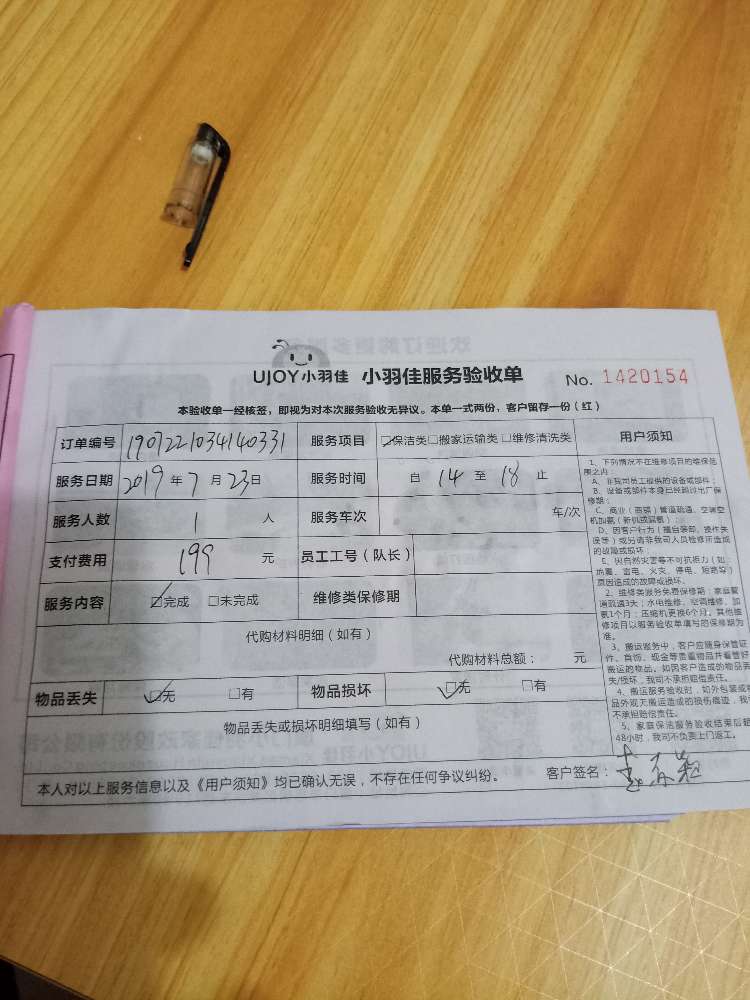 UJOY小羽佳 小羽佳服务验收单 No. 1420154
本验收单一经核签，即视为对本次服务验收无异议。本单一式两份，客户留存一份（红）
订单编号 1907221034140331 服务项目 ☑保洁类□搬家运输类□维修清洗类 用户须知
服务日期 2019 年 7 月 23 日 服务时间 自 14 至 18 止
服务人数 1 人 服务车次 车/次
支付费用 199 元 员工工号（队长）
服务内容 ☑完成 □未完成 维修类保修期
代购材料明细（如有）
代购材料总额： 元
物品丢失 ☑无 □有 物品损坏 ☑无 □有
物品丢失或损坏明细填写（如有）
本人对以上服务信息以及《用户须知》均已确认无误，不存在任何争议纠纷。 客户签名：
1、下列情况不在维修项目的维保范
围之内：
A、非我司员工提供的设备或部件；
B、设备或部件本身已经超过出厂保
修期；
C、商业（商铺）管道疏通、空调空
机加氨（新机或漏氨）
D、因客户行为（擅自装卸、操作失
误等）或另请非我司人员检修所造成
的故障或损坏；
E、因自然灾害等不可抗拒力（如：
地震、雷电、火灾、停电、短路等）
原因造成的故障或损坏。
2、维修类服务免费保修期：家庭管
道疏通3天；水电维修、空调维修、加
氨1个月；压缩机更换6个月。其他维
修项目以服务验收单填写的保修期为
准。
3、搬运服务中，客户应随身保管证
件、首饰、现金等贵重物品并看管好
搬运的物品。如因客户造成的物品丢
失/损坏，我司不承担赔偿责任。
4、搬运服务验收时，如外包装或
品外观无搬运造成的损伤痕迹，我
不承担赔偿责任。
5、家庭保洁服务验收结束后超
48小时，我司不负责上门返工。